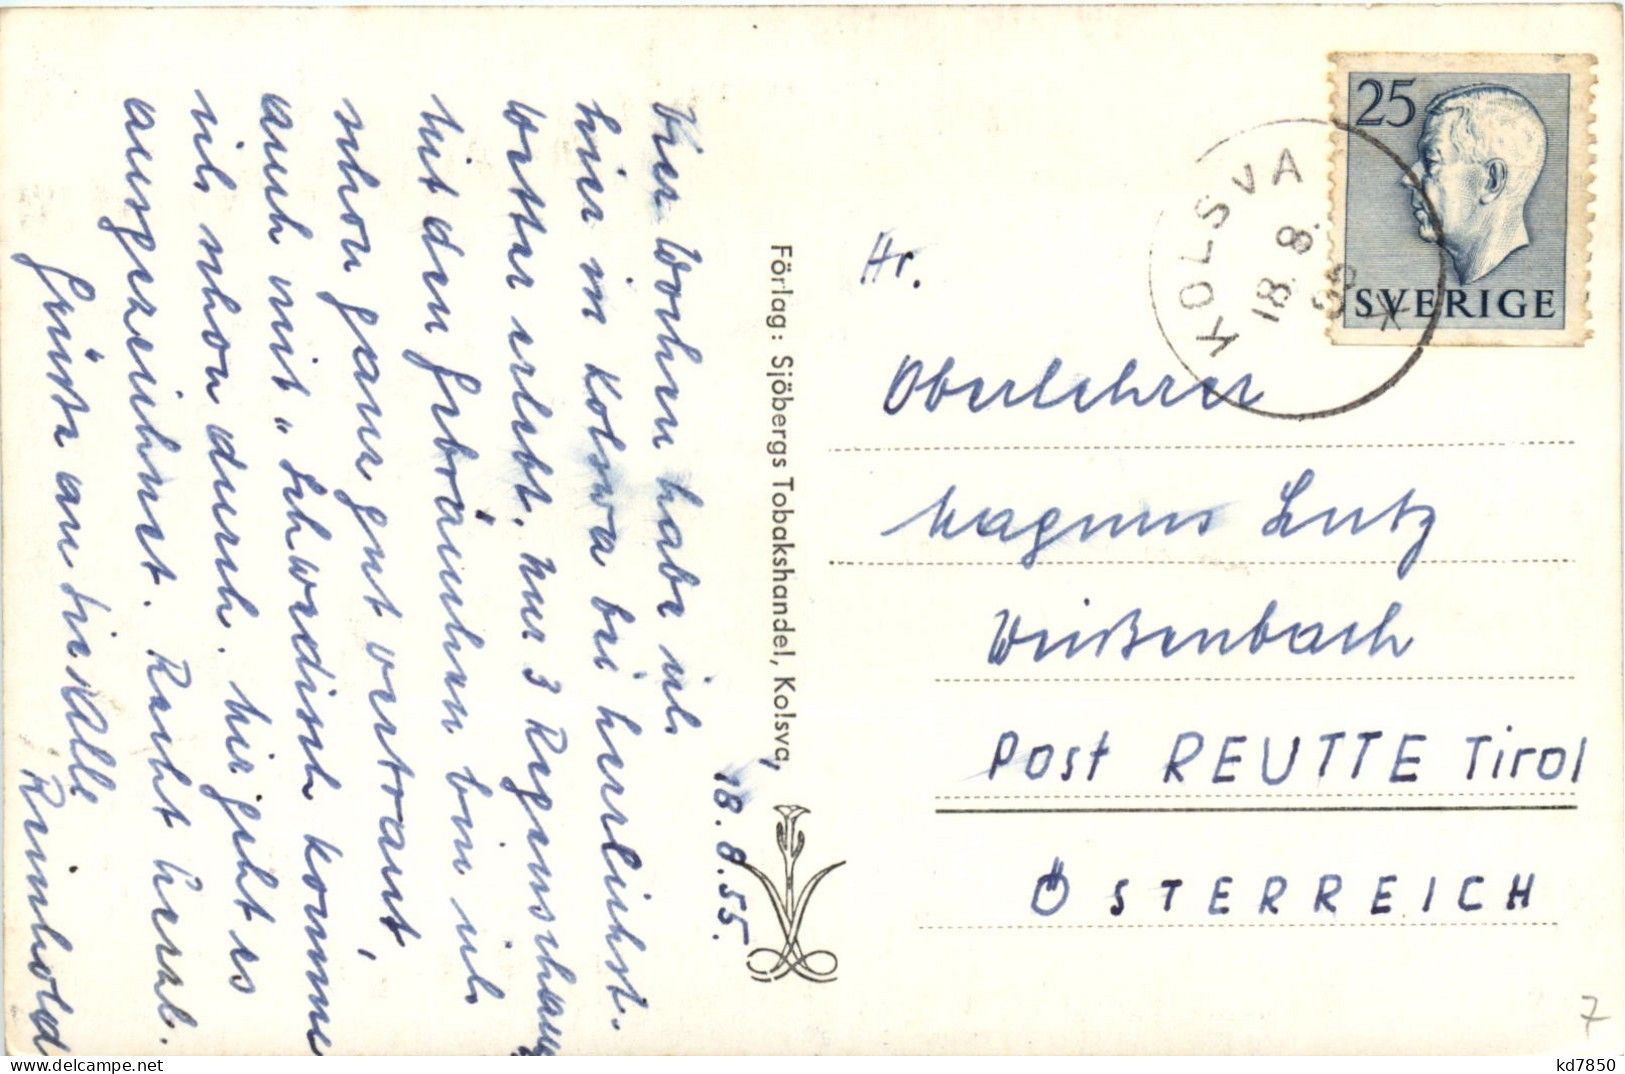 18.8.55.
Vier Wochen habe ich
hier in Kolsva bei herrlichst.
Wetter erlebt. Nur 3 Regenschauer
Mit den Gebräuchen bin ich
schon ganz gut vertraut,
auch mit "Schwedisch komme
ich schon durch. Mir geht es
ausgezeichnet. Recht herzl.
Grüße an Sie Alle
Reinhold
Förlag: Sjöbergs Tobakshandel, Kolsva,
25
SVERIGE
KOLSVA
18. 8. 55
Hr.
Oberlehrer
Magnus Lutz
Weißenbach
Post REUTTE Tirol
ÖSTERREICH
7
kd7850